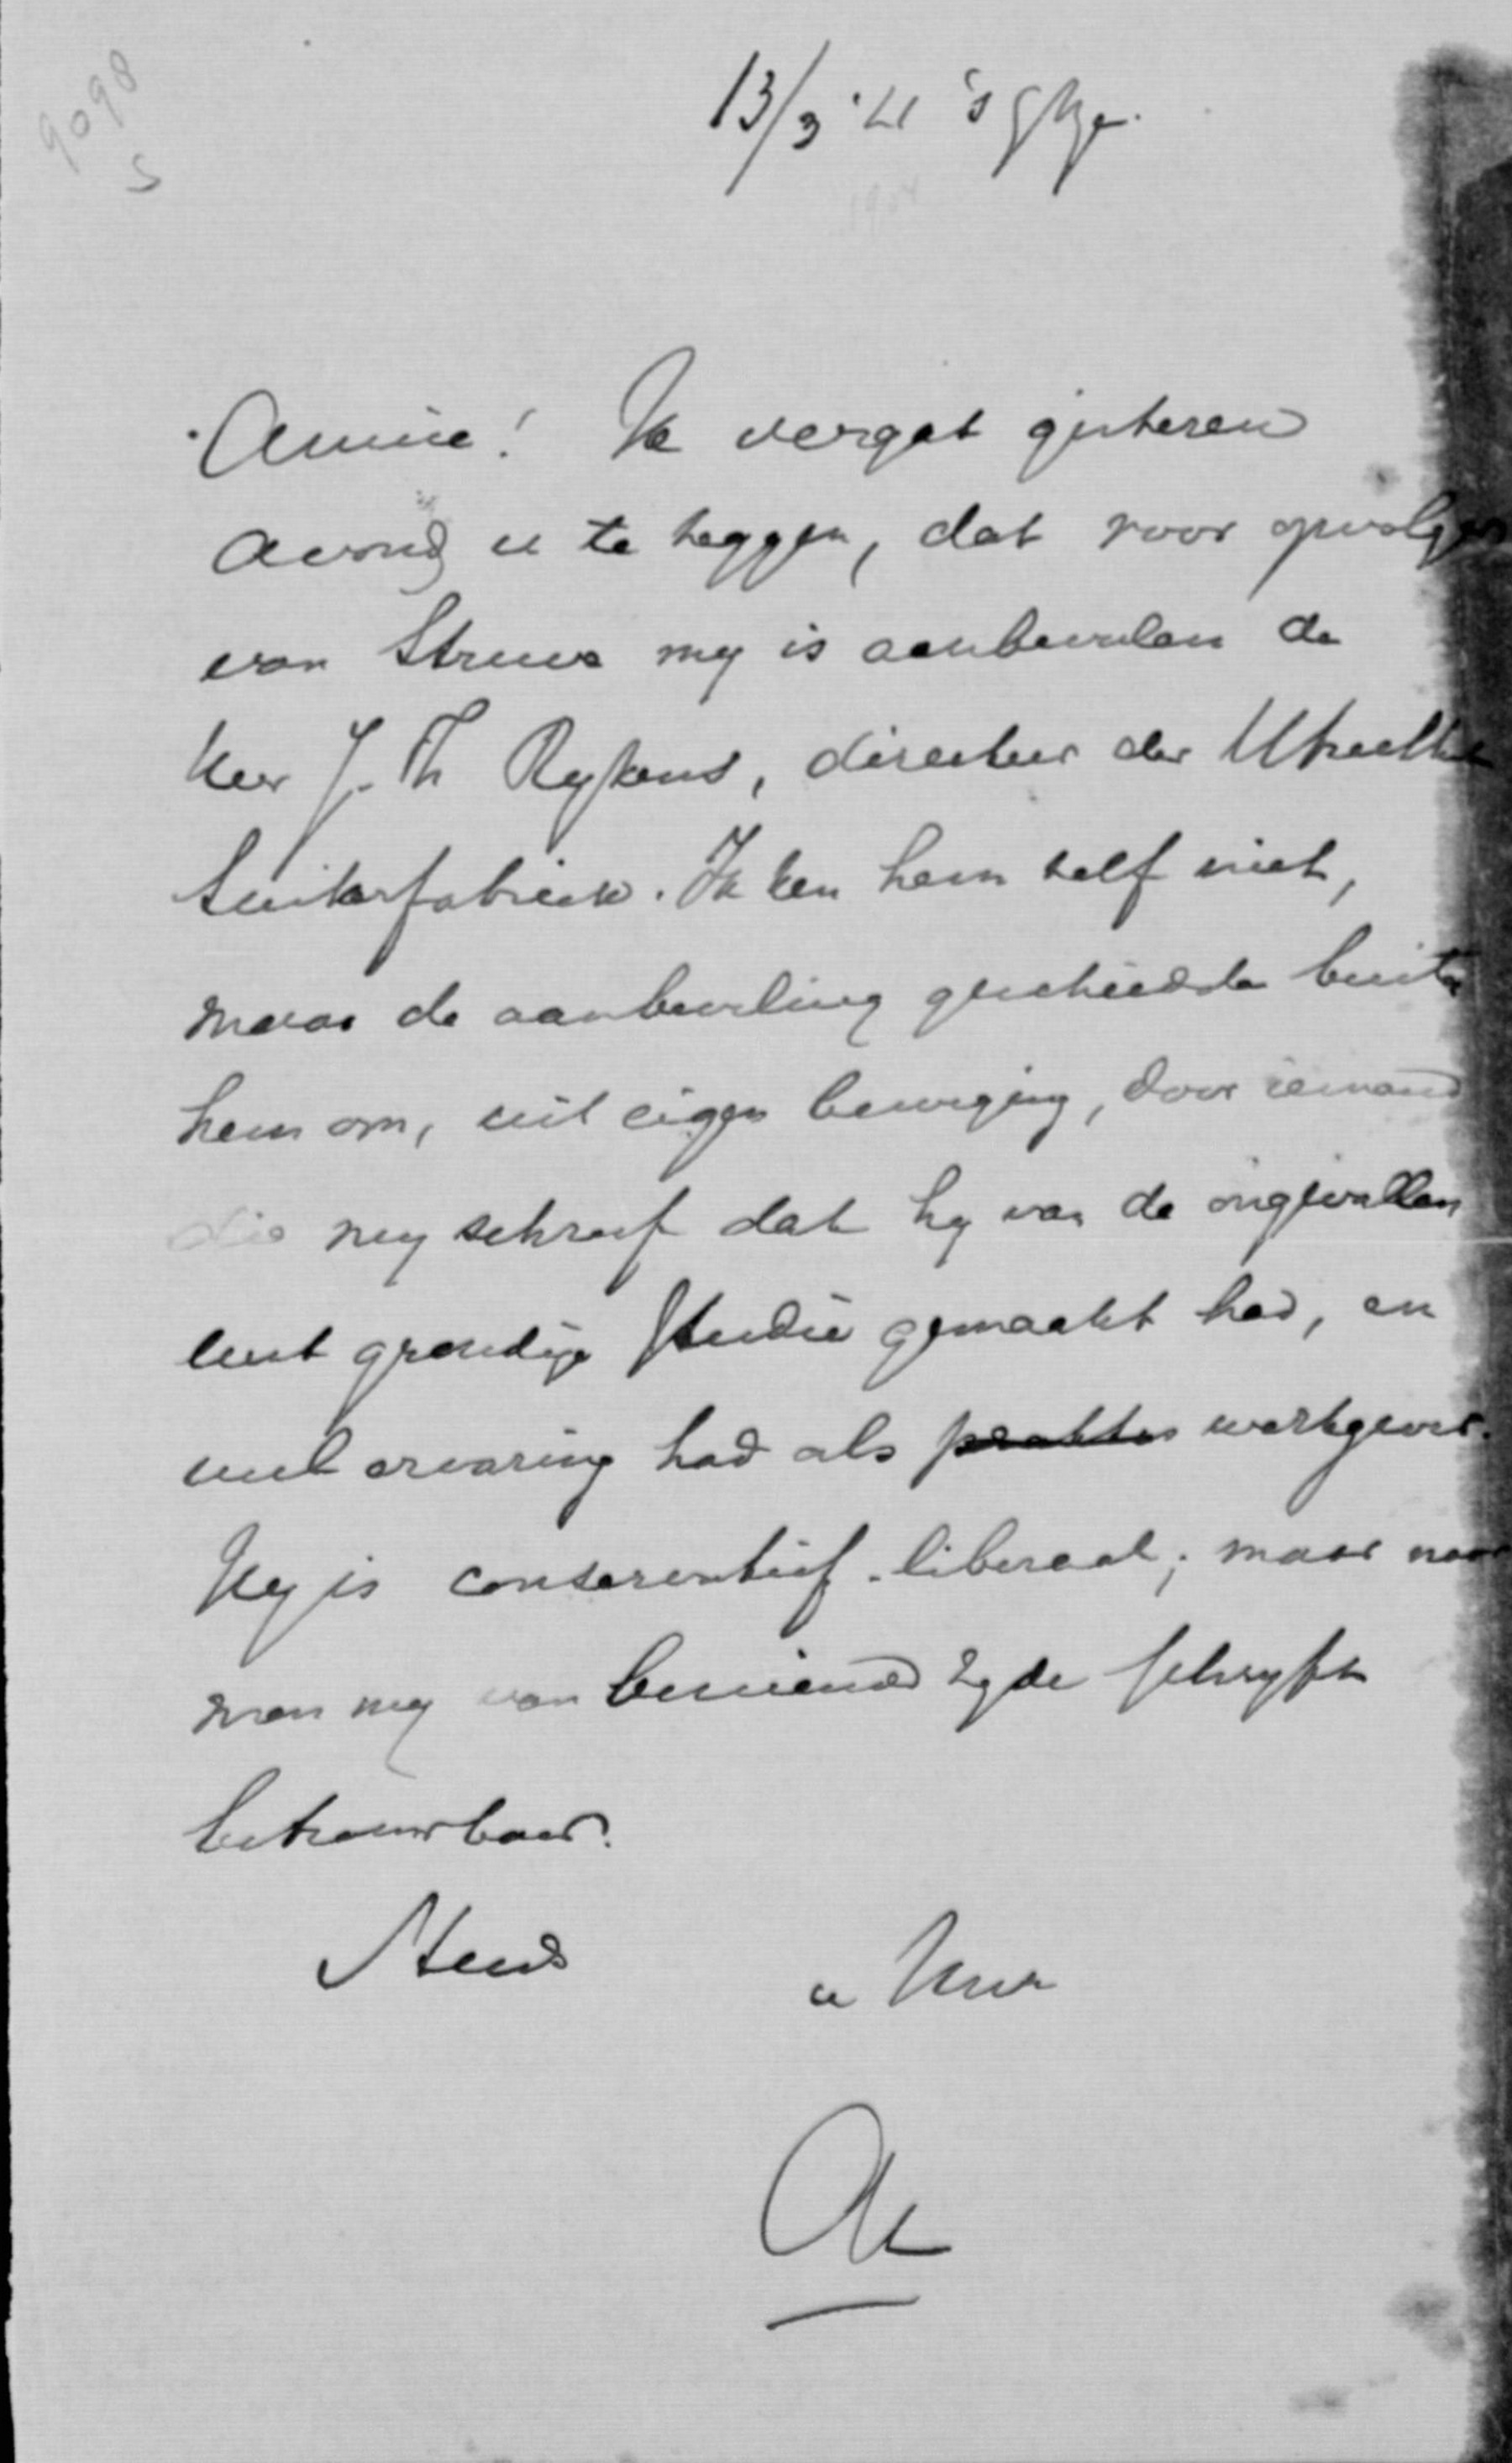 9098
S
13/3 '21 's Ghge.
Amice! Ik vergat gisteren
avond u te zeggen, dat voor opvolger
van Struve my is aanbevolen de
heer J. Th Rykens, directeur der Utrechtse
Suikerfabriek. Ik ken hem zelf niet,
maar de aanbeveling geschiedde buiten
hem om, uit eigen beweging, door iemand
die my schreef dat hy van de ongevallen
wet grondige studie gemaakt had, en
veel ervaring had als werkgever.
Hy is conservatief-liberaal; maar naar
men my van bevriende zyde schryft
betrouwbaar.
Steeds